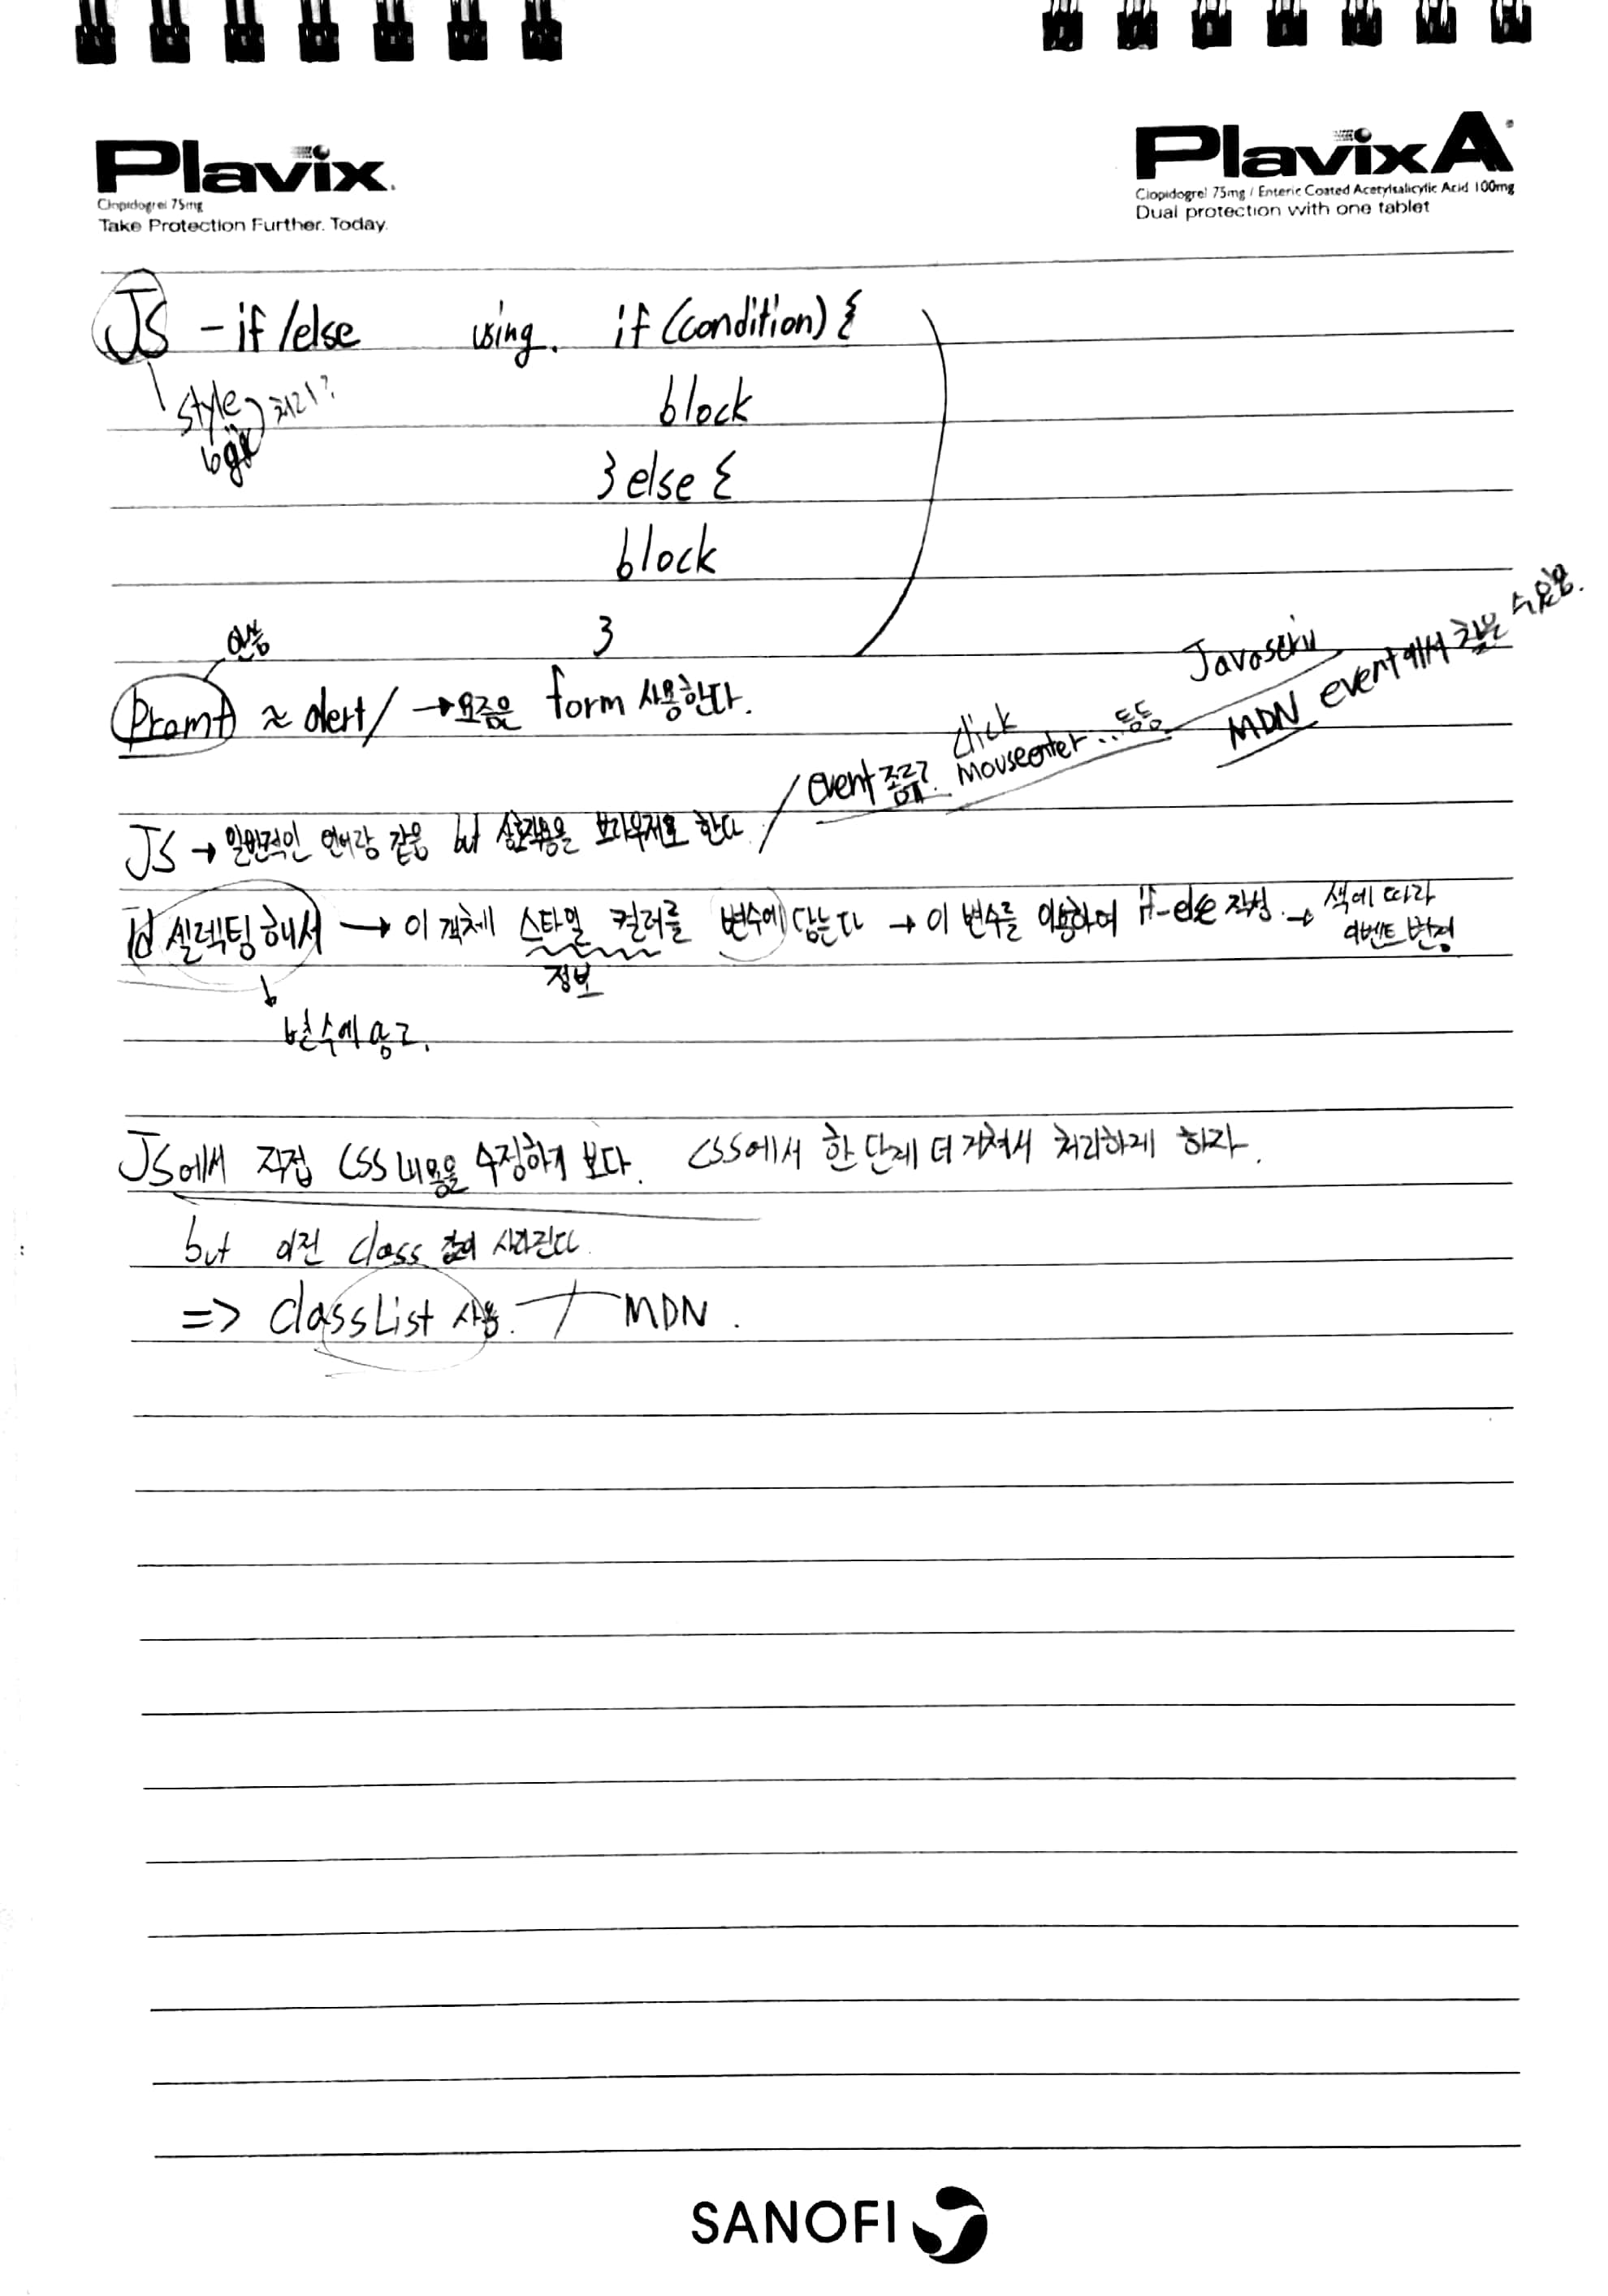 Plavix
Clopidogrel 75mg
Take Protection Further. Today.
PlavixA
Clopidogrel 75mg / Enteric Coated Acetylsalicylic Acid 100mg
Dual protection with one tablet
JS - if/else using. if (condition) {
style logic) 처리?
block
} else {
block
}
안씀
Promt ≈ alert / → 요즘은 form 사용한다.
JS → 일반적인 언어랑 같음 but 상호작용을 브라우저로 한다 /
event 종류? click mouseenter ... 등등
Javascri
MDN event에서 찾을 수 있음.
id 셀렉팅 해서 → 이 객체 스타일 컬러를 변수에 담는다 → 이 변수를 이용하여 if-else 작성. → 색에 따라 이벤트 변경
정보
변수에 담고.
JS에서 직접 CSS 내용을 수정하기 보다. CSS에서 한 단계 더 거쳐서 처리하게 하자.
but 이전 class 값이 사라진다.
=> classList 사용. MDN.
SANOFI